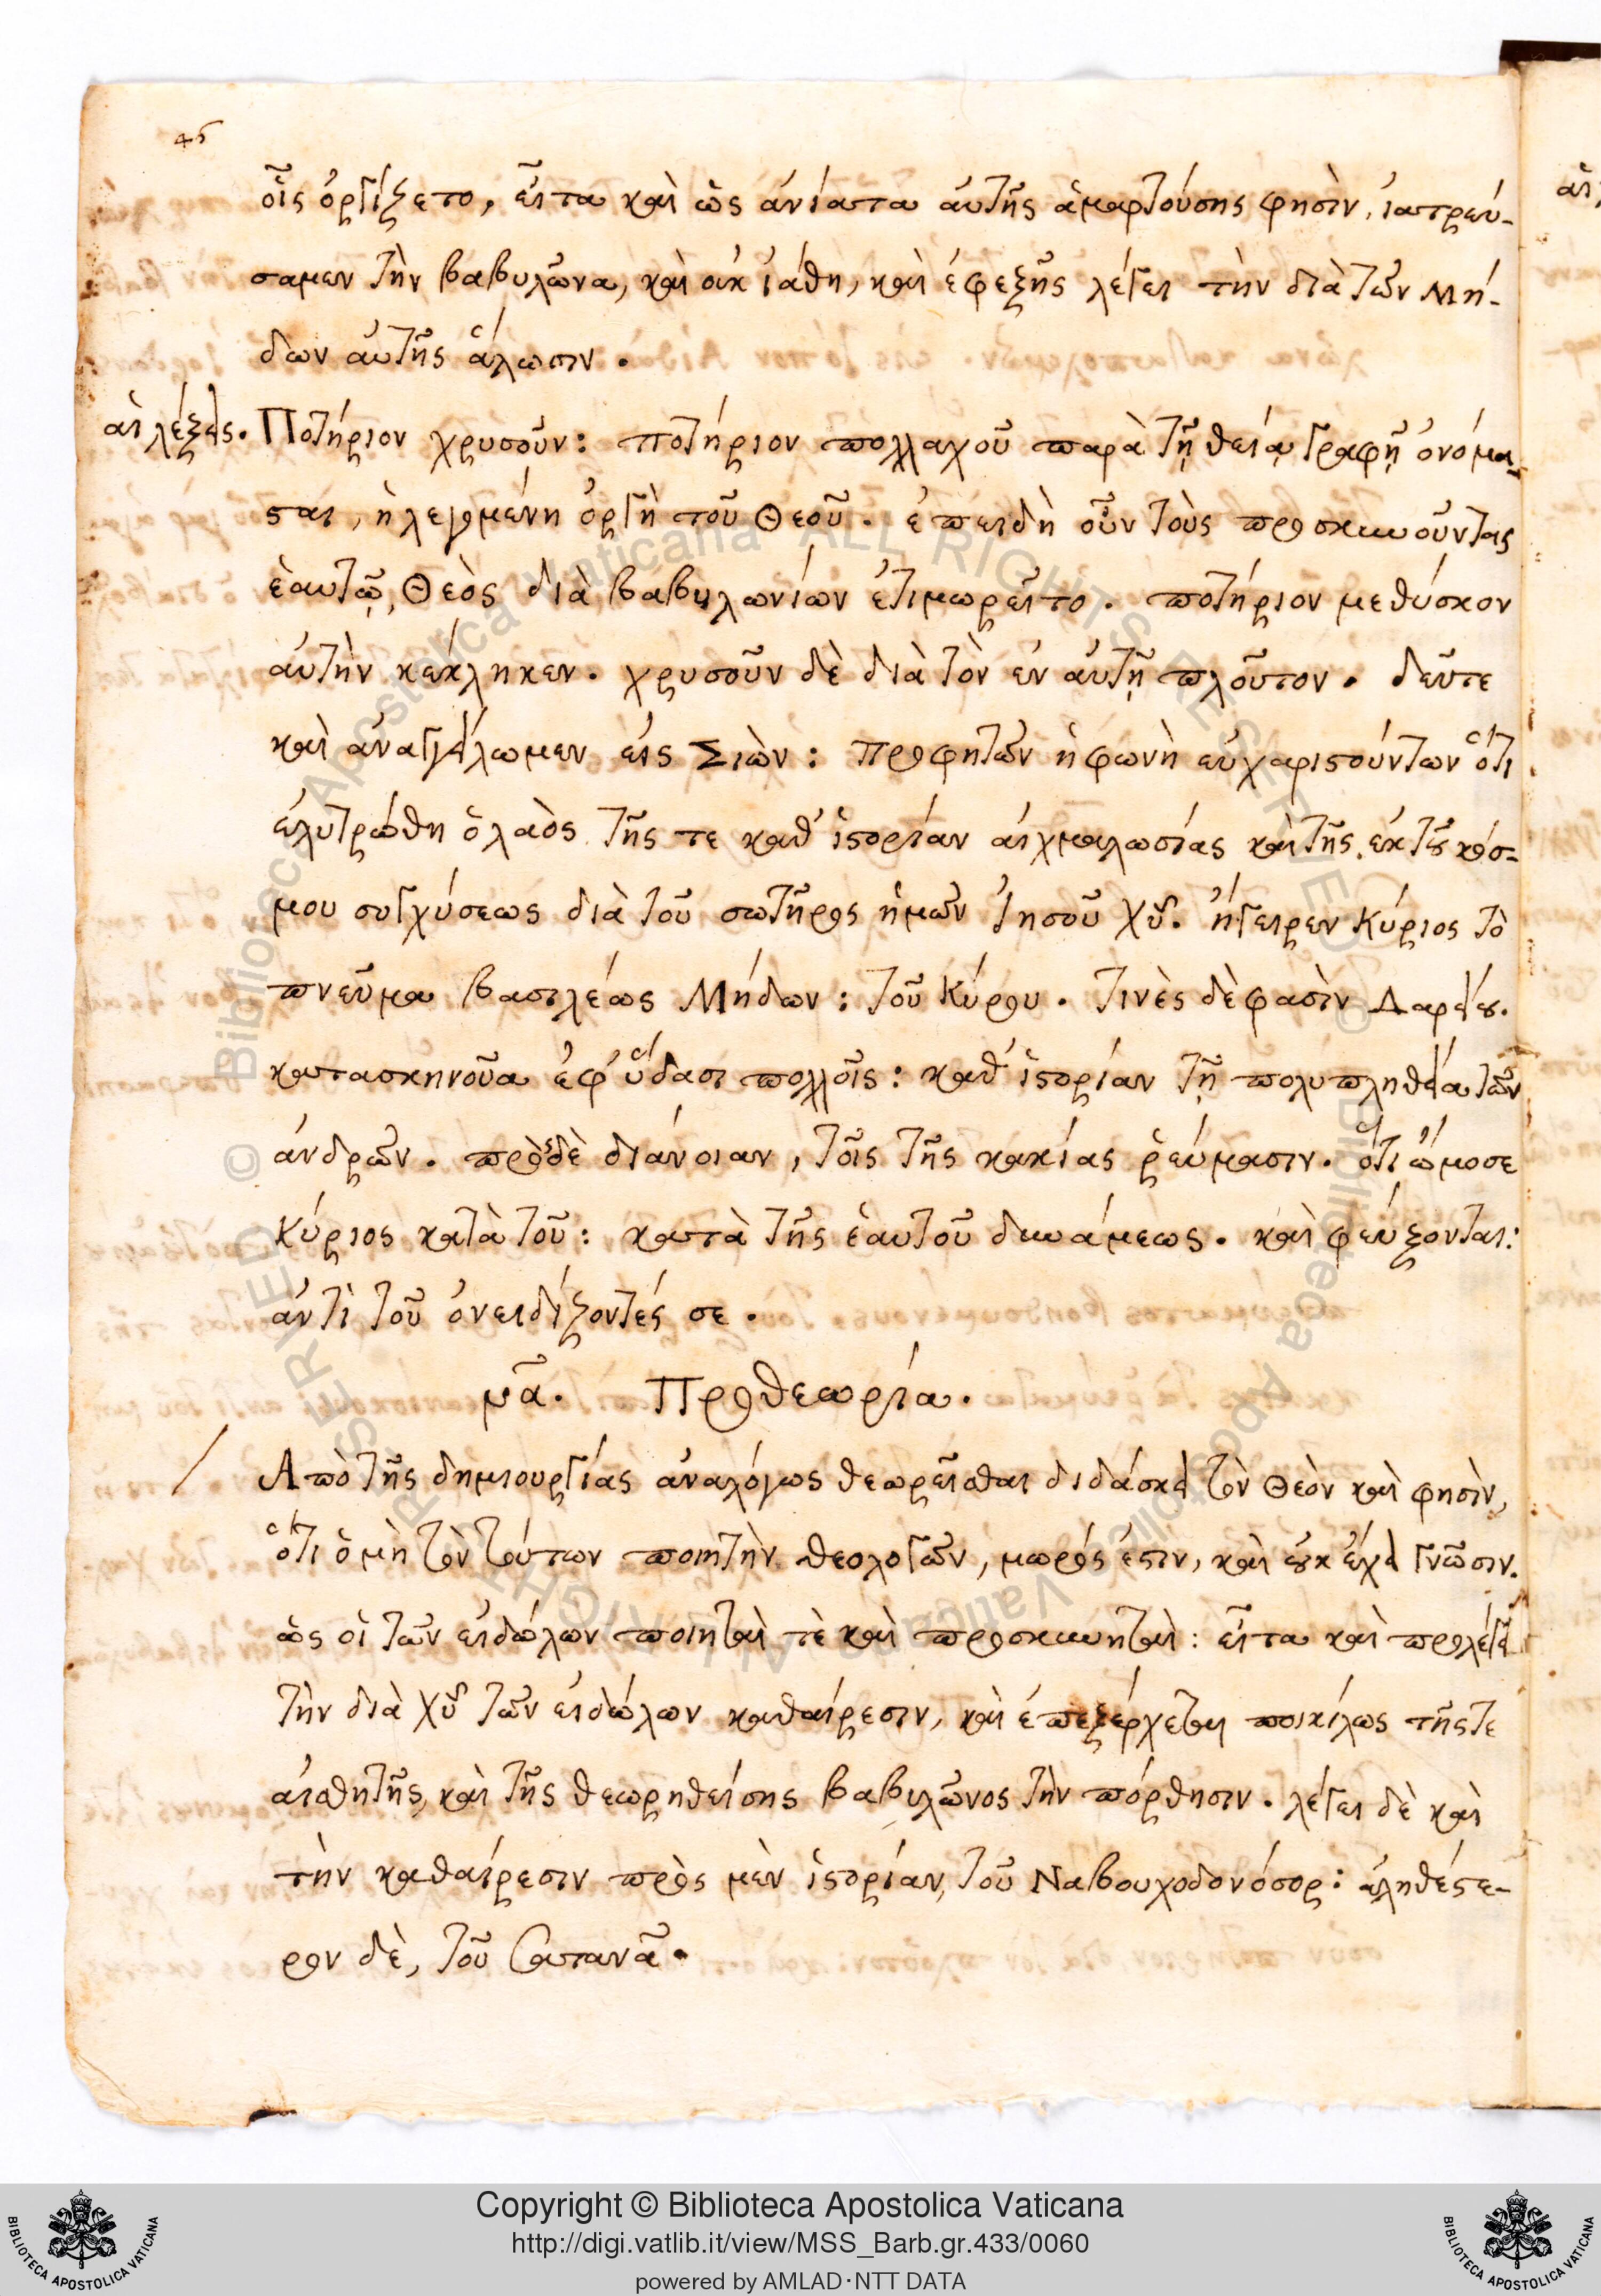 45
οἷς ὀργίζετο, εἶτα καὶ ὡς ἀνίατα αὐτῆς ἁμαρτούσης φησὶν, ἰατρεύ-
σαμεν τὴν βαβυλῶνα, καὶ οὐκ ἰάθη, καὶ ἐφεξῆς λέγει τὴν διὰ τῶν Μή-
δων αὐτῆς ἅλωσιν.
αἱ λέξεις. Ποτήριον χρυσοῦν: ποτήριον πολλαχοῦ παρὰ τῇ θείᾳ γραφῇ ὀνόμα-
σαι, ἡ λεγομένη ὀργὴ τοῦ Θεοῦ. ἐπειδὴ οὖν τοὺς προσκυνοῦντας
ἑαυτῷ, Θεὸς διὰ βαβυλωνίων ἐτιμωρεῖτο. ποτήριον μεθύσκον
αὐτὴν κέκληκεν. χρυσοῦν δὲ διὰ τὸν ἐν αὐτῇ πλοῦτον. δεῦτε
καὶ ἀναγγείλωμεν εἰς Σιὼν: προφητῶν ἡ φωνὴ εὐχαριστούντων ὅτι
ἐλυτρώθη ὁ λαὸς τῆς τε καθ' ἱστορίαν αἰχμαλωσίας καὶ τῆς ἐκ τοῦ κόσ-
μου συγχύσεως διὰ τοῦ σωτῆρος ἡμῶν Ἰησοῦ Χυ. ἤγειρεν Κύριος τὸ
πνεῦμα βασιλέως Μήδων: τοῦ Κύρου. τινὲς δὲ φασὶν Δαρείου.
κατασκηνοῦα ἐφ' ὕδασι πολλοῖς: καθ' ἱστορίαν τῇ πολυπληθείᾳ τῶν
ἀνδρῶν. πρὸς δὲ διάνοιαν, τοῖς τῆς κακίας ῥεύμασιν. ὅτι ὤμοσε
Κύριος κατὰ τοῦ: κατὰ τῆς ἑαυτοῦ δυνάμεως. καὶ φεύξονται:
ἀντὶ τοῦ ὀνειδίζοντές σε.
μα. Προθεωρία.
Ἀπὸ τῆς δημιουργίας ἀναλόγως θεωρεῖσθαι διδάσκει τὸν Θεὸν καὶ φησὶν,
ὅτι ὁ μὴ τὸν τούτων ποιητὴν θεολογῶν, μωρός ἐστιν, καὶ οὐκ ἔχει γνῶσιν.
ὡς οἱ τῶν εἰδώλων ποιηταὶ τὲ καὶ προσκυνηταὶ: εἶτα καὶ προλέγει
τὴν διὰ Χυ τῶν εἰδώλων καθαίρεσιν, καὶ ἐπεξέρχεται ποικίλως τῆς τε
αἰσθητῆς, καὶ τῆς θεωρηθείσης βαβυλῶνος τὴν πόρθησιν. λέγει δὲ καὶ
τὴν καθαίρεσιν πρὸς μὲν ἱστορίαν, τοῦ Ναβουχοδονόσορ: ἀληθέστε-
ρον δὲ, τοῦ Σατανᾶ.
Copyright © Biblioteca Apostolica Vaticana
http://digi.vatlib.it/view/MSS_Barb.gr.433/0060
powered by AMLAD·NTT DATA